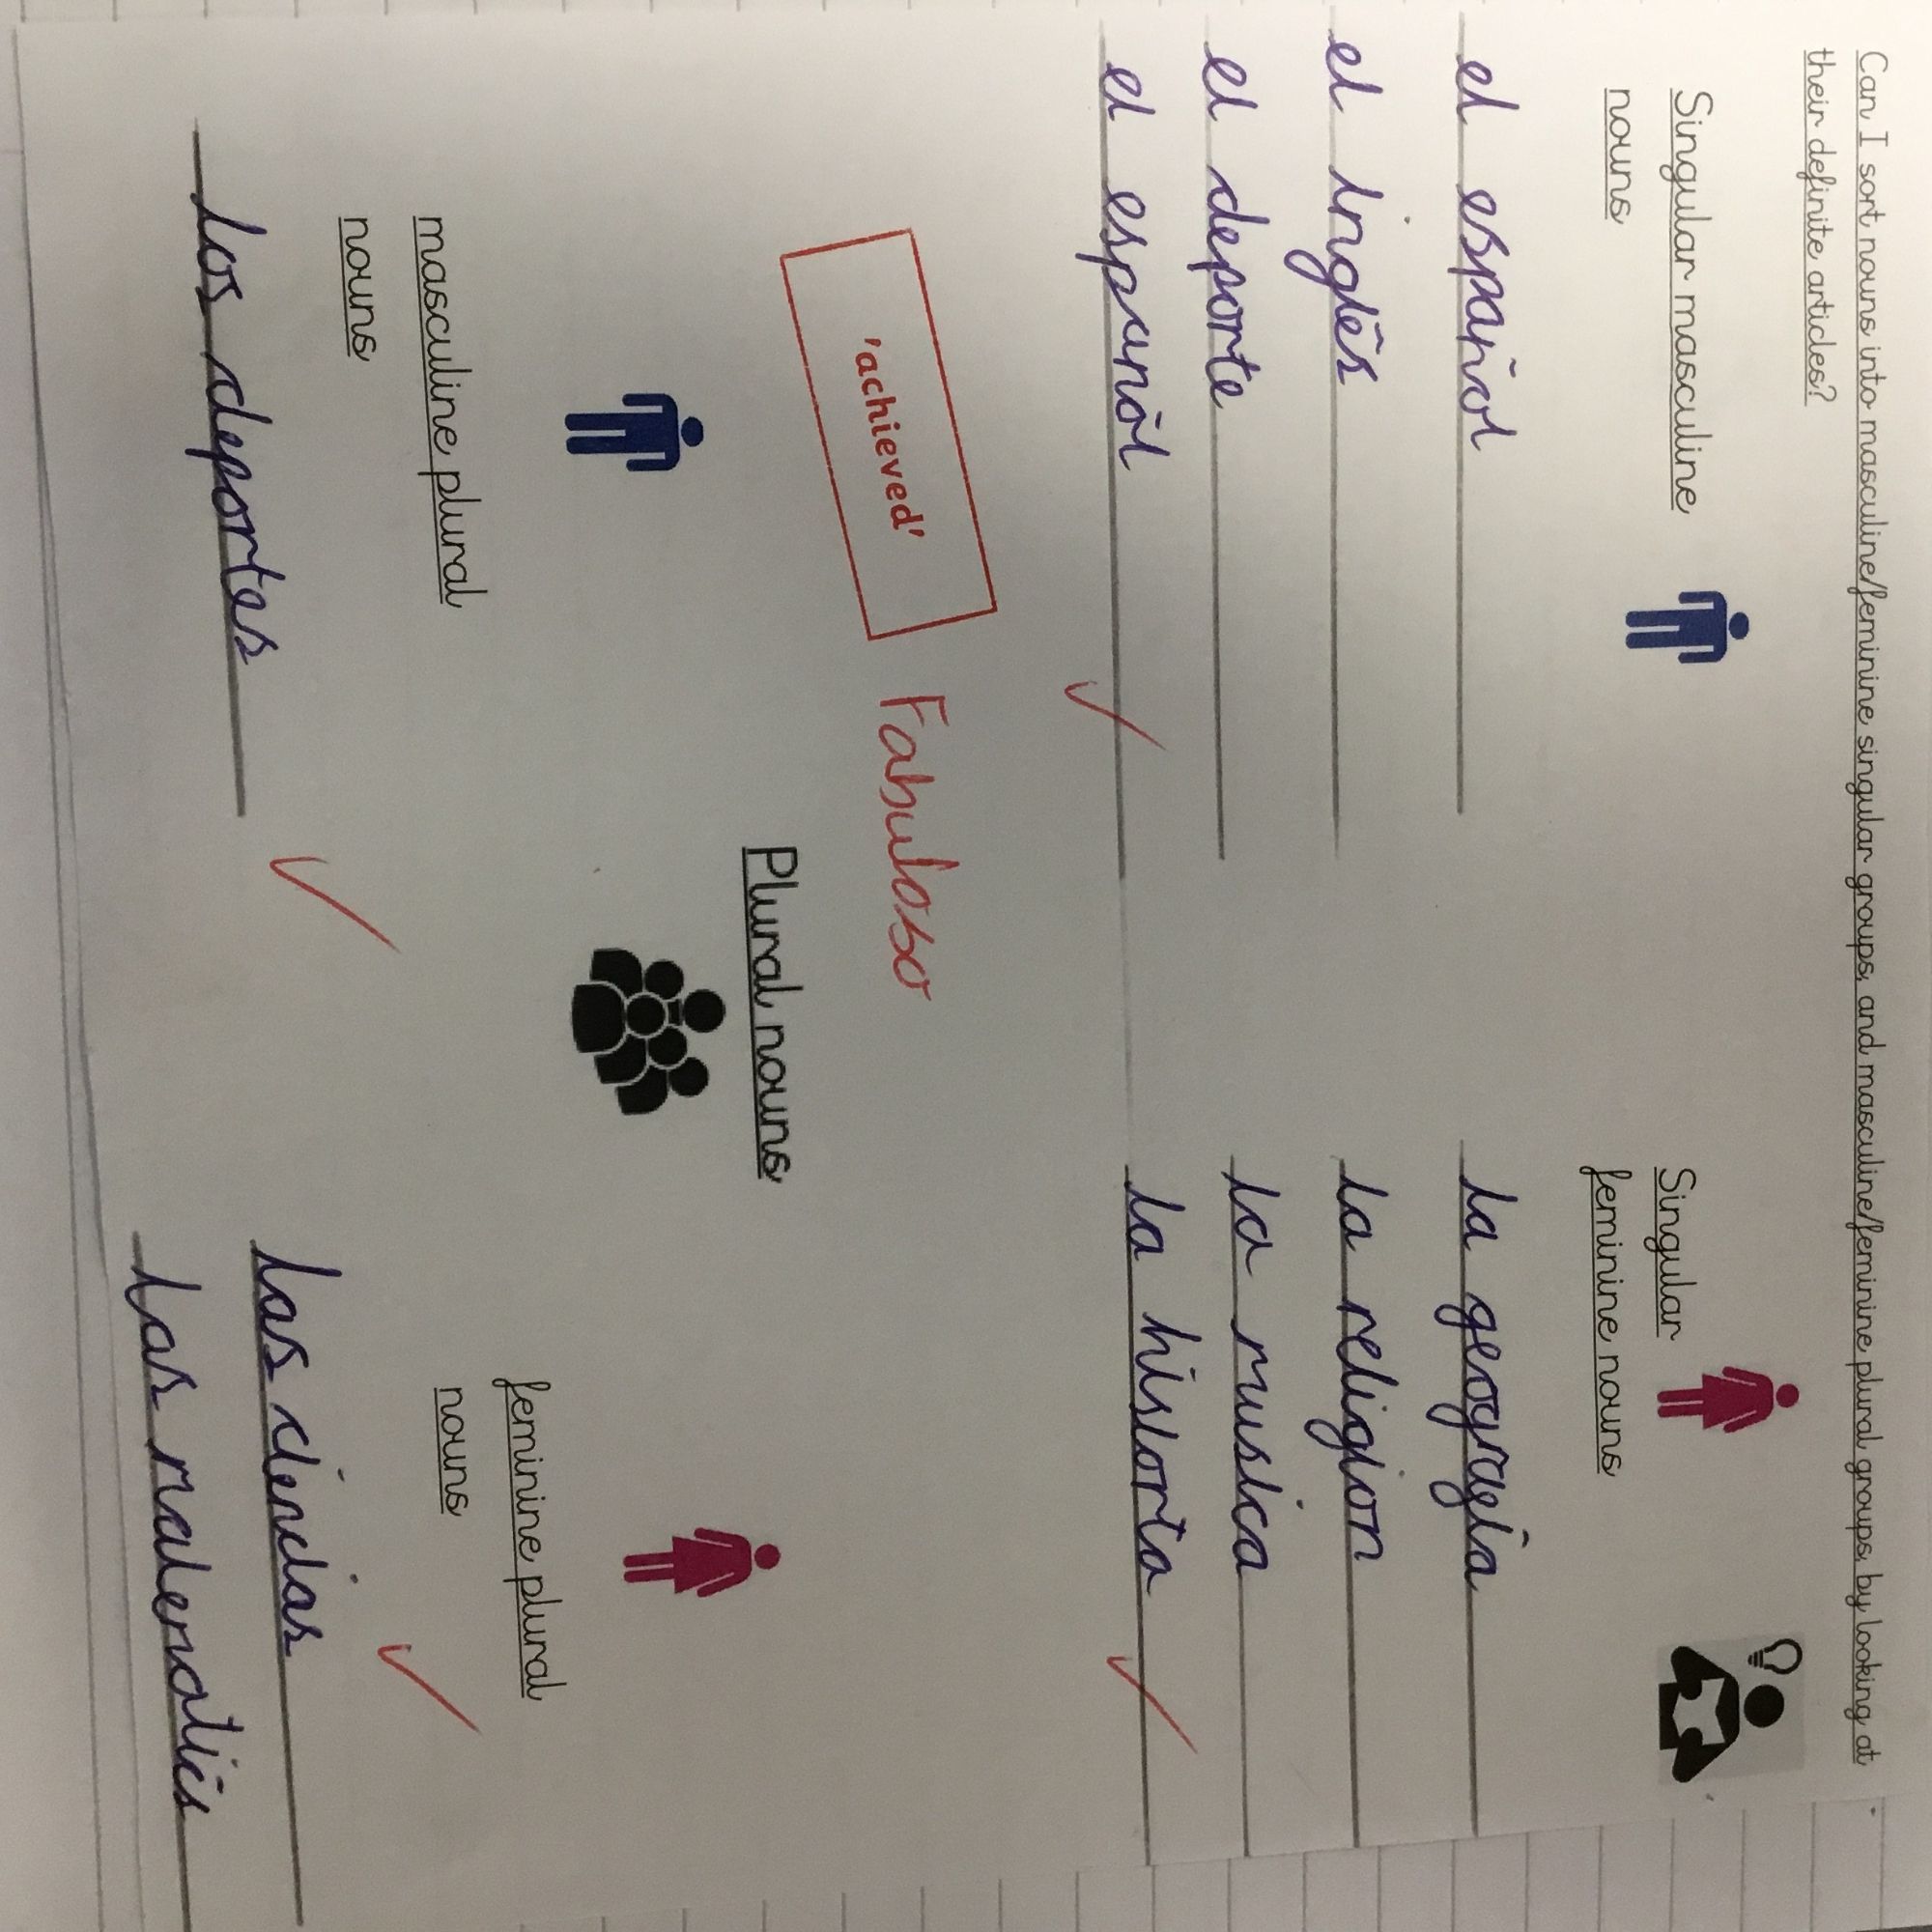 Can I sort nouns into masculine/feminine singular groups, and masculine/feminine plural groups, by looking at
their definite articles?
Singular masculine
nouns
Singular
feminine nouns
el español
el inglés
el deporte
el espanol
la geografía
la religion
la musica
la historia
'achieved'
Fabuloso
Plural nouns
masculine plural
nouns
feminine plural
nouns
los deportes
las ciencias
las